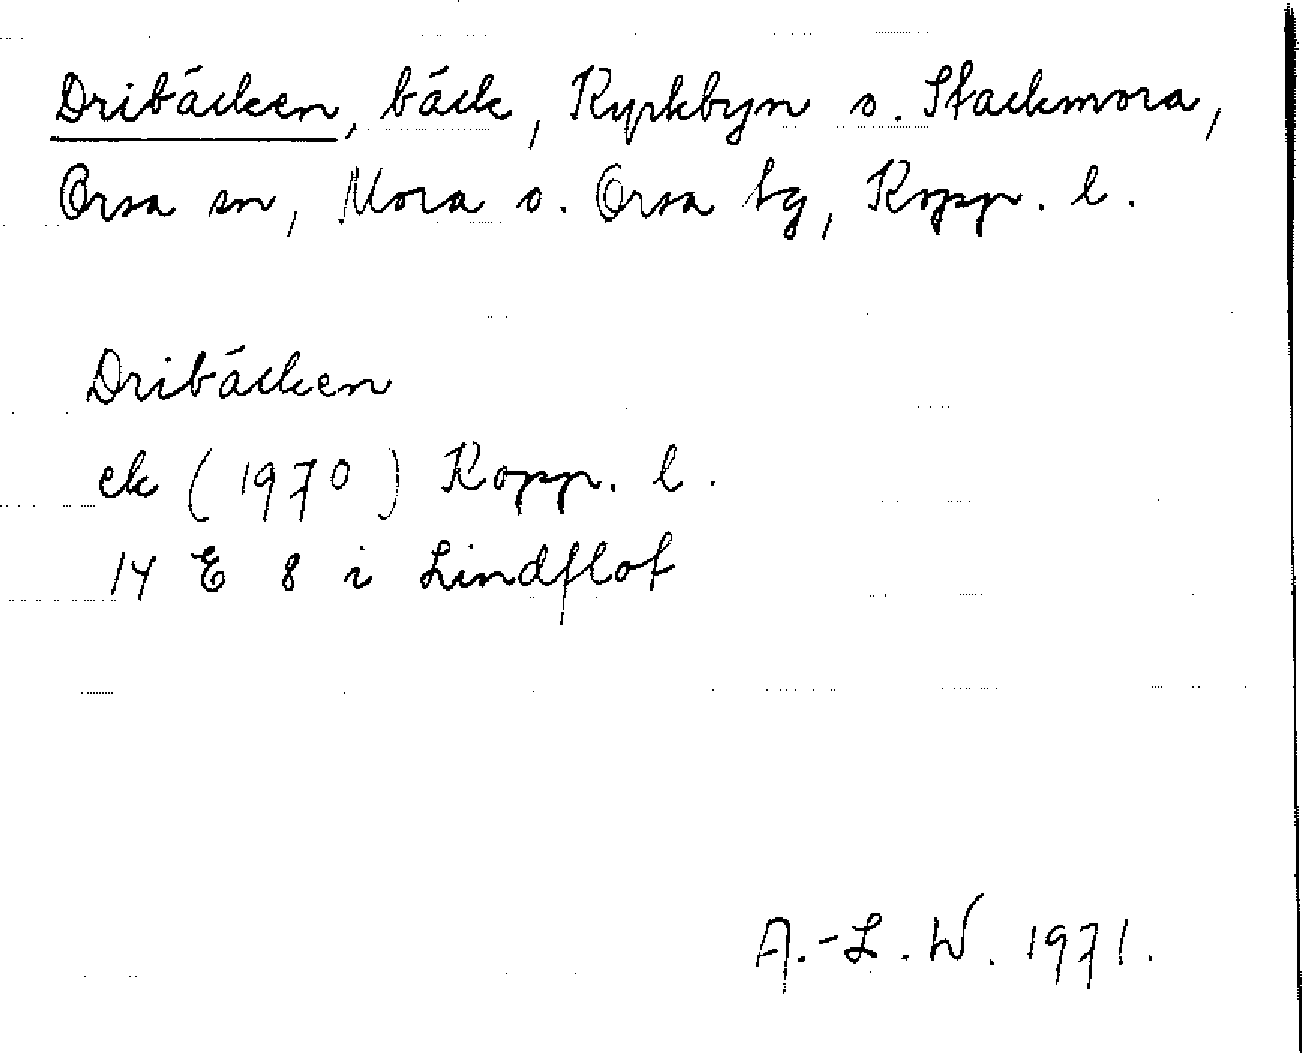 Dribäcken, bäck, Kyrkbyn o. Stackmora,
Orsa sn, Mora o. Orsa tg, Kopp. l.
Dribäcken
ek (1970) Kopp. l.
14 E 8 i Lindflot
A.-L. W. 1971.